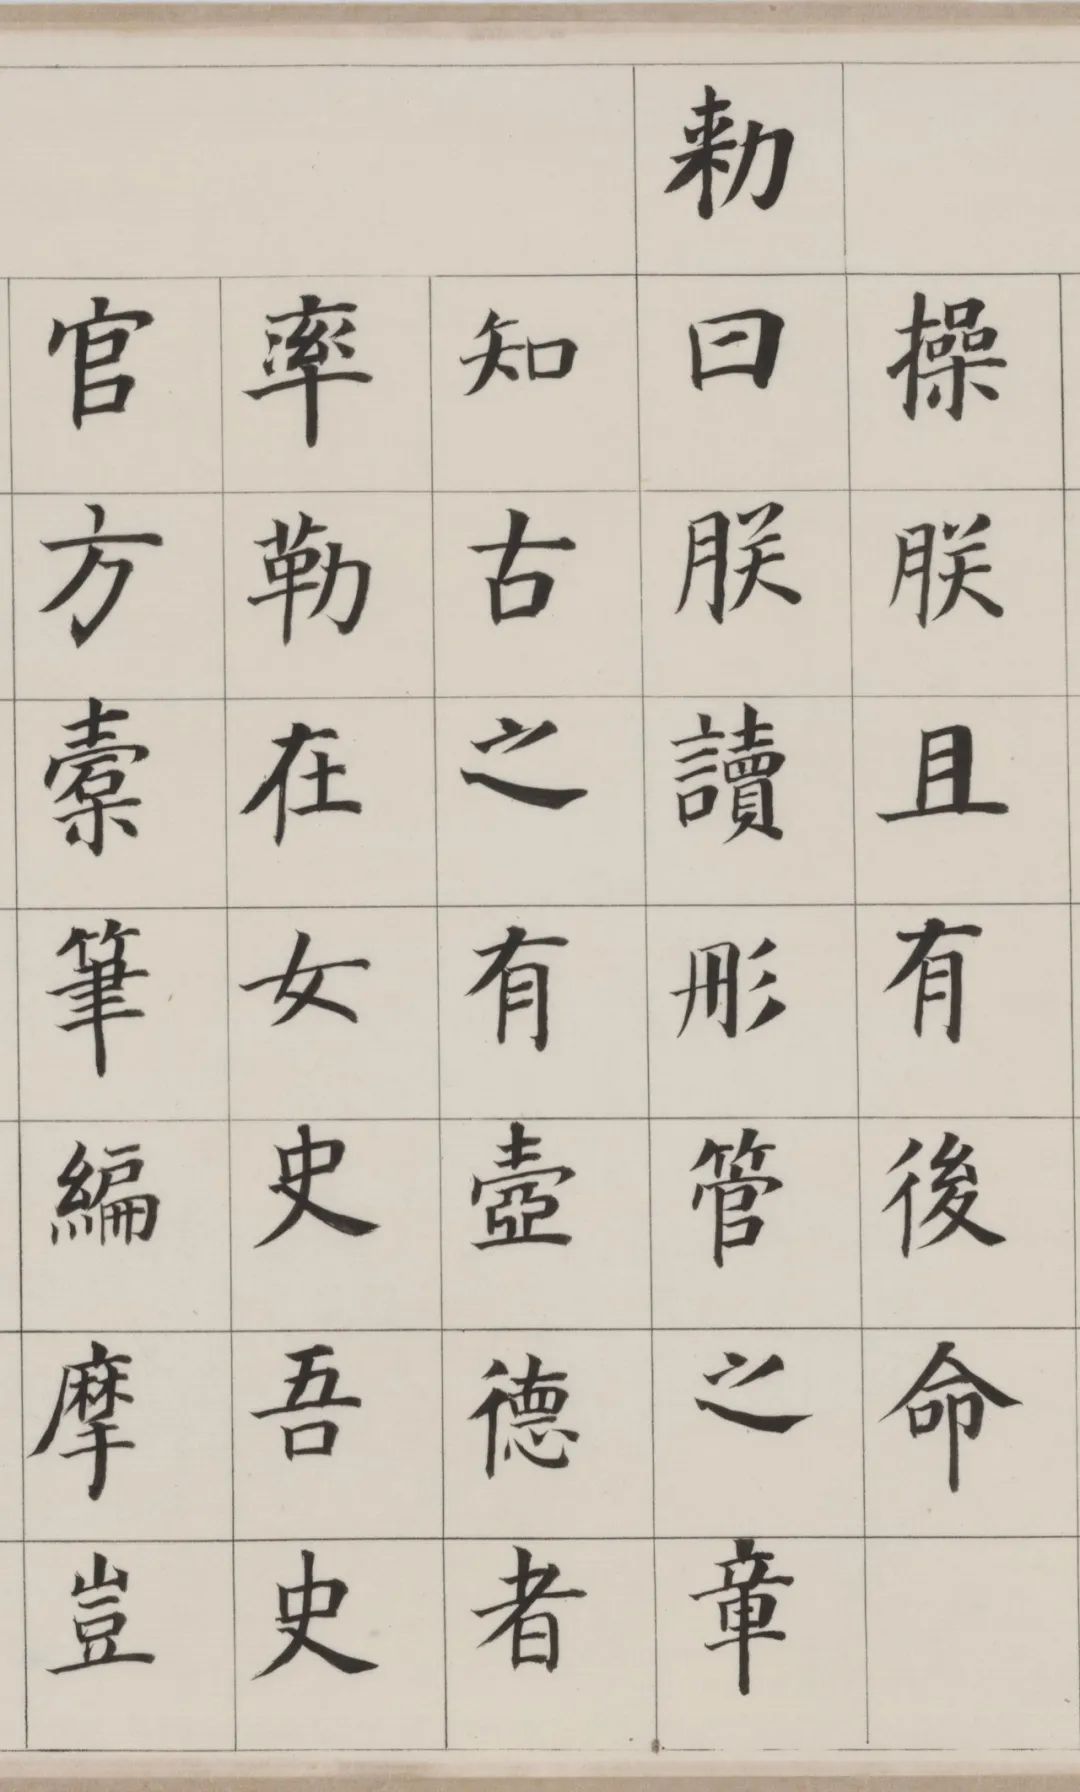 操朕且有後命
勑曰朕讀彤管之章
知古之有壼德者
率勒在女史吾史
官方槖筆編摩豈